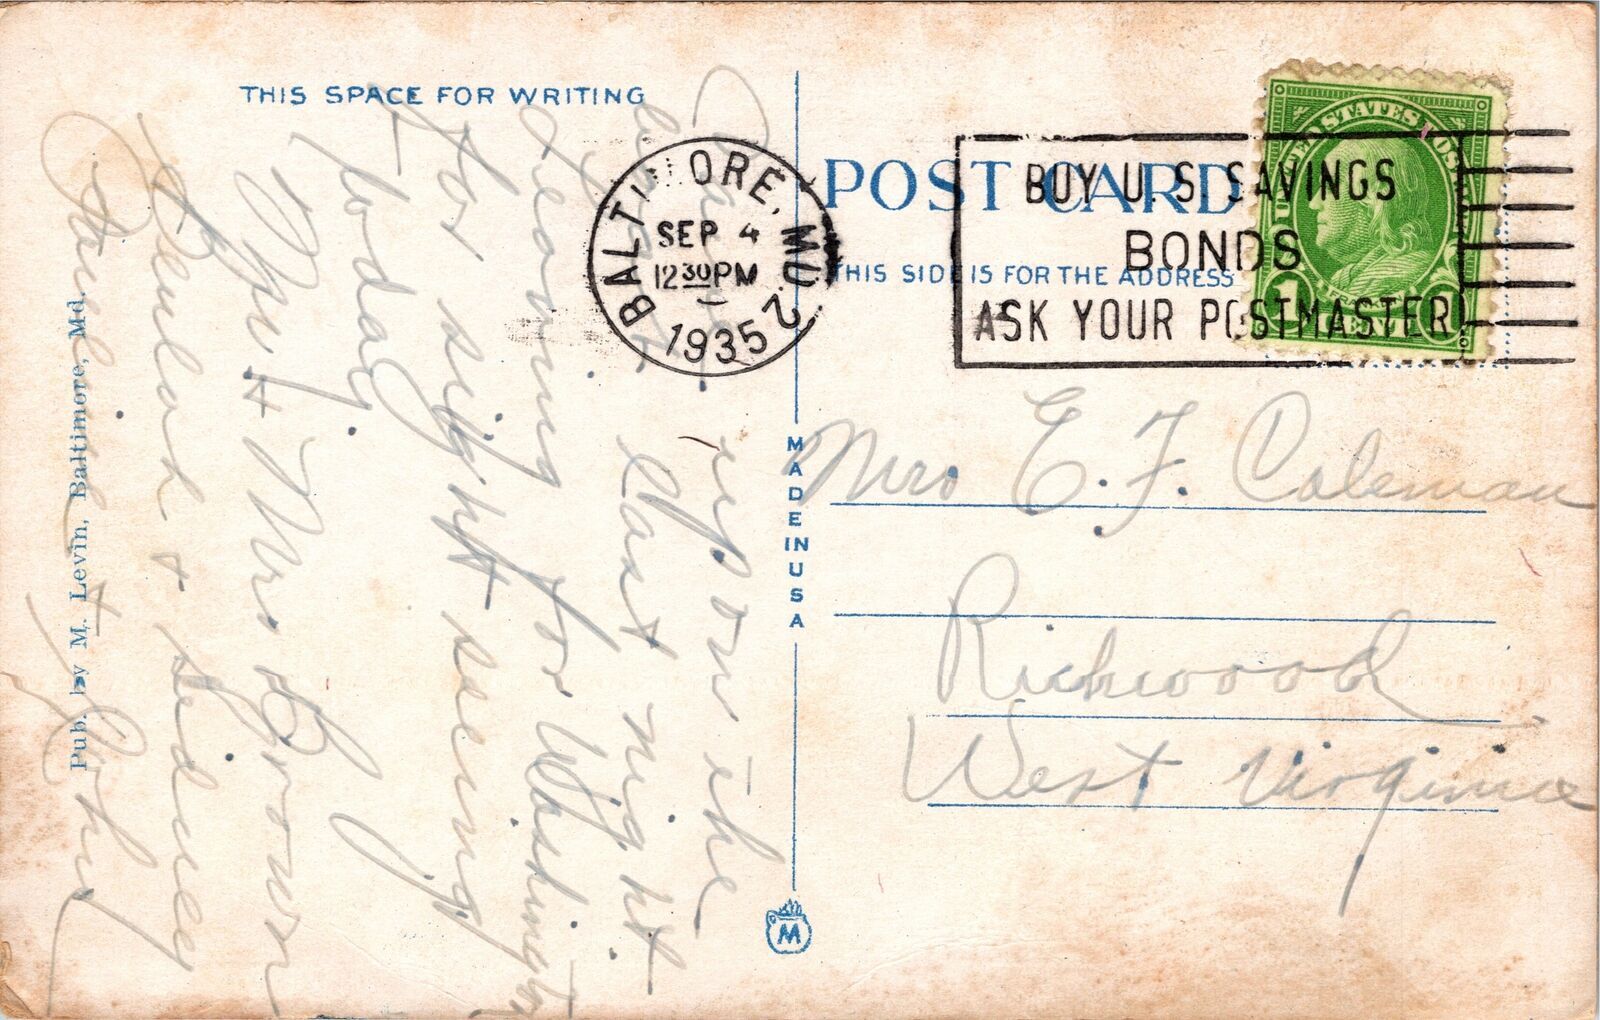 THIS SPACE FOR WRITING
Came up on the
boat last night
Leaving for Washington
for sight seeing
today.
Mr & Mrs Brown
Beulah & Sidney
Pauline & John
Pub. by M. Levin, Baltimore, Md.
BALTIMORE, MD. 2
SEP 4
12 30 PM
1935
POST CARD
THIS SIDE IS FOR THE ADDRESS
BUY U.S. SAVINGS
BONDS
ASK YOUR POSTMASTER
UNITED STATES POSTAGE
FRANKLIN
1 CENT 1
MADE IN USA
Mrs E. F. Coleman
Richwood
West Virginia
M